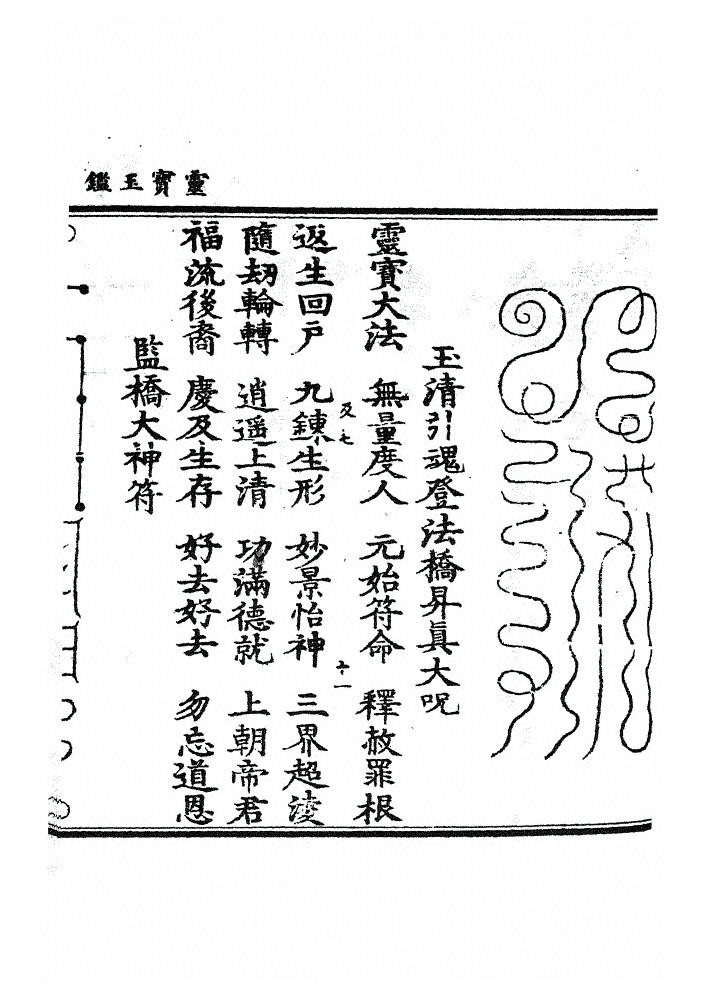 靈寶玉鑑
玉清引魂登法橋昇眞大呪
靈寶大法　無量度人　元始符命　釋赦罪根
及七
十一
返生回尸　九鍊生形　妙景怡神　三界超淩
隨劫輪轉　逍遥上清　功滿德就　上朝帝君
福流後裔　慶及生存　好去好去　勿忘道恩
監橋大神符